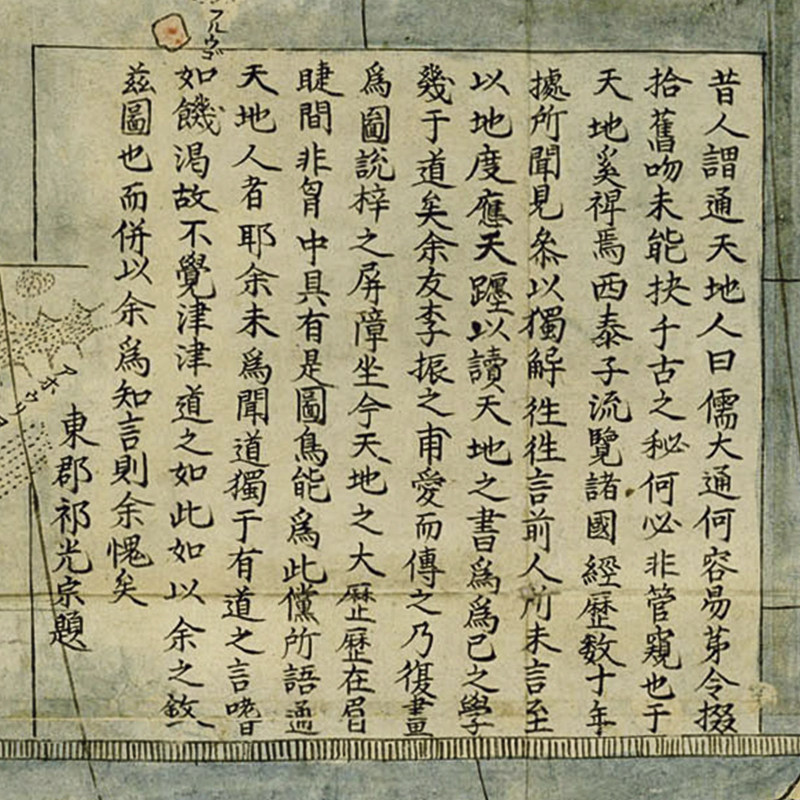 昔人謂通天地人曰儒大通何容易苐令掇
拾舊吻未能抉千古之秘何必非管窺也于
天地奚裨焉西泰子流覽諸國經歷数十年
據所聞見叅以獨解徃徃言前人所未言至
以地度應天躔以讀天地之書為為己之學
幾于道矣余友李振之甫愛而傳之乃復畫
爲圖說梓之屏障坐今天地之大歷歷在眉
睫間非胷中具有是圖烏能爲此儻所語通
天地人者耶余未爲聞道獨于有道之言嗜
如饑渴故不覺津津道之如此如以余之敘
茲圖也而併以余爲知言則余愧矣
東郡祁光宗題
フルヴゴ